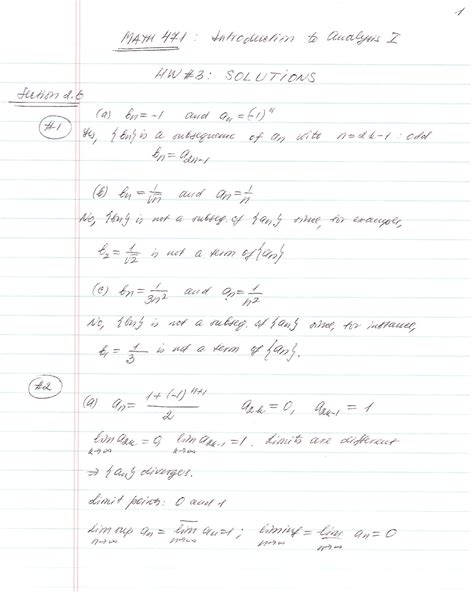 1
MATH 471: Introduction to Analysis I
HW#3: SOLUTIONS
Section 2.6
#1
(a) bn = -1 and an = (-1)^n
Yes, {bn} is a subsequence of an with n = 2k-1: odd
bn = a2n-1
(b) bn = 1/√n and an = 1/n
No, {bn} is not a subseq. of {an} since, for example,
b2 = 1/√2 is not a term of {an}
(c) bn = 1/3n² and an = 1/n²
No, {bn} is not a subseq. of {an} since, for instance,
b1 = 1/3 is not a term of {an}.
#2
(a) an = 1+(-1)^n+1 / 2 a2k = 0, a2k-1 = 1
lim a2k = 0, lim a2k-1 = 1. Limits are different
k→∞ k→∞
⇒ {an} diverges.
Limit points: 0 and 1
limsup an = lim an = 1; liminf = lim an = 0
n→∞ n→∞ n→∞ n→∞